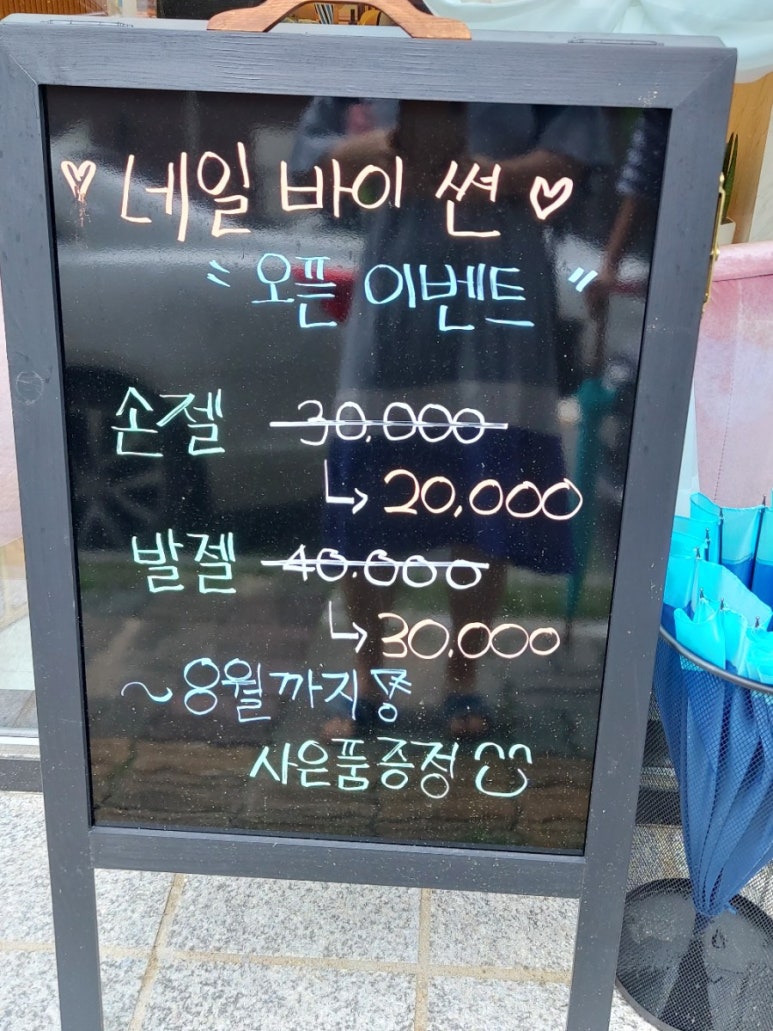 ♡ 네일 바이 썬 ♡
〃 오픈 이벤트 〃
손젤 30.000
↳ 20,000
발젤 40.000
↳ 30,000
~8월까지
사은품증정